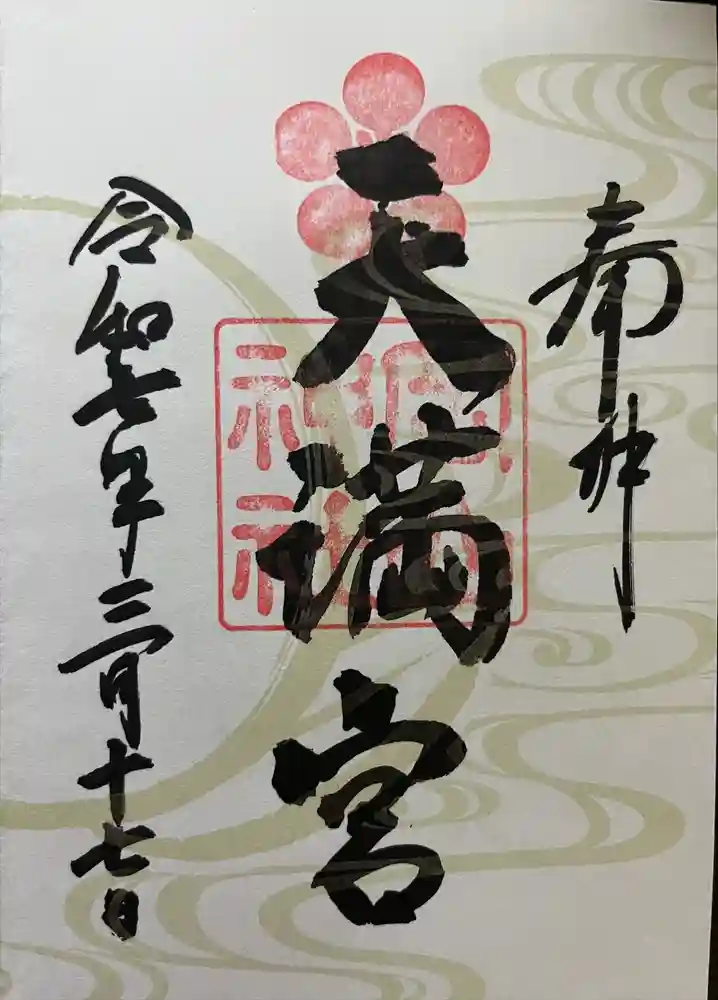 奉拝
天満宮
令和七年三月十七日